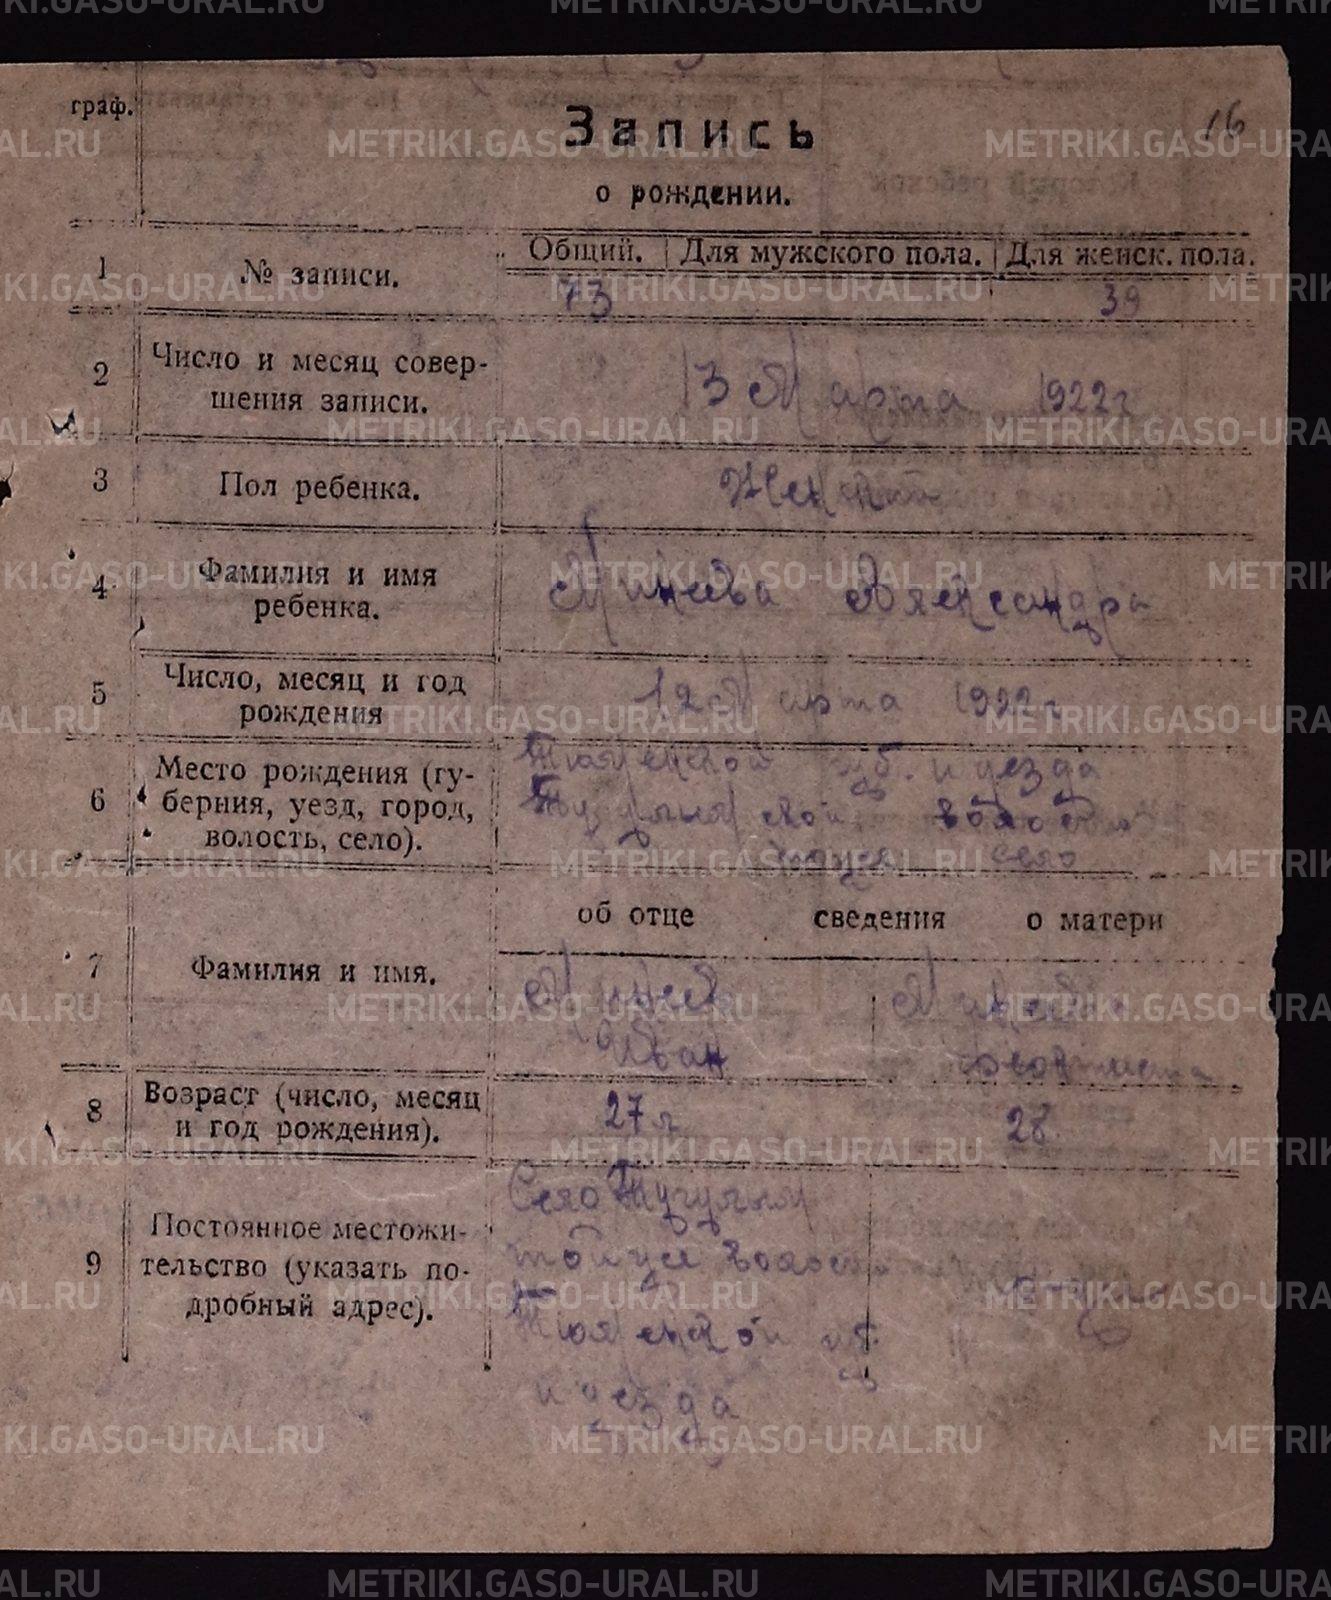 METRIKI.GASO-URAL.RU
граф.
16
Запись
о рождении.
1
№ записи.
Общий. Для мужского пола. Для женск. пола.
73 39
2
Число и месяц совер-
шения записи.
13 Марта 1922 г
3
Пол ребенка.
Женск
4
Фамилия и имя
ребенка.
Минеева Александра
5
Число, месяц и год
рождения
12 Марта 1922 г
6
Место рождения (гу-
берния, уезд, город,
волость, село).
Тюменской губ. и уезда
Тугулымской волости
село
об отце сведения о матери
7
Фамилия и имя.
Минеев Минеева
Иван
8
Возраст (число, месяц
и год рождения).
27 л 28
9
Постоянное местожи-
тельство (указать по-
дробный адрес).
Село Тугулым
той же волости
Тюменской губ.
и уезда